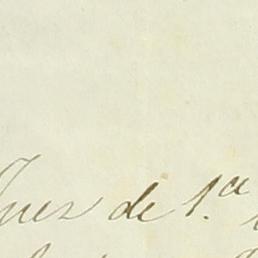 Juez de 1.ª